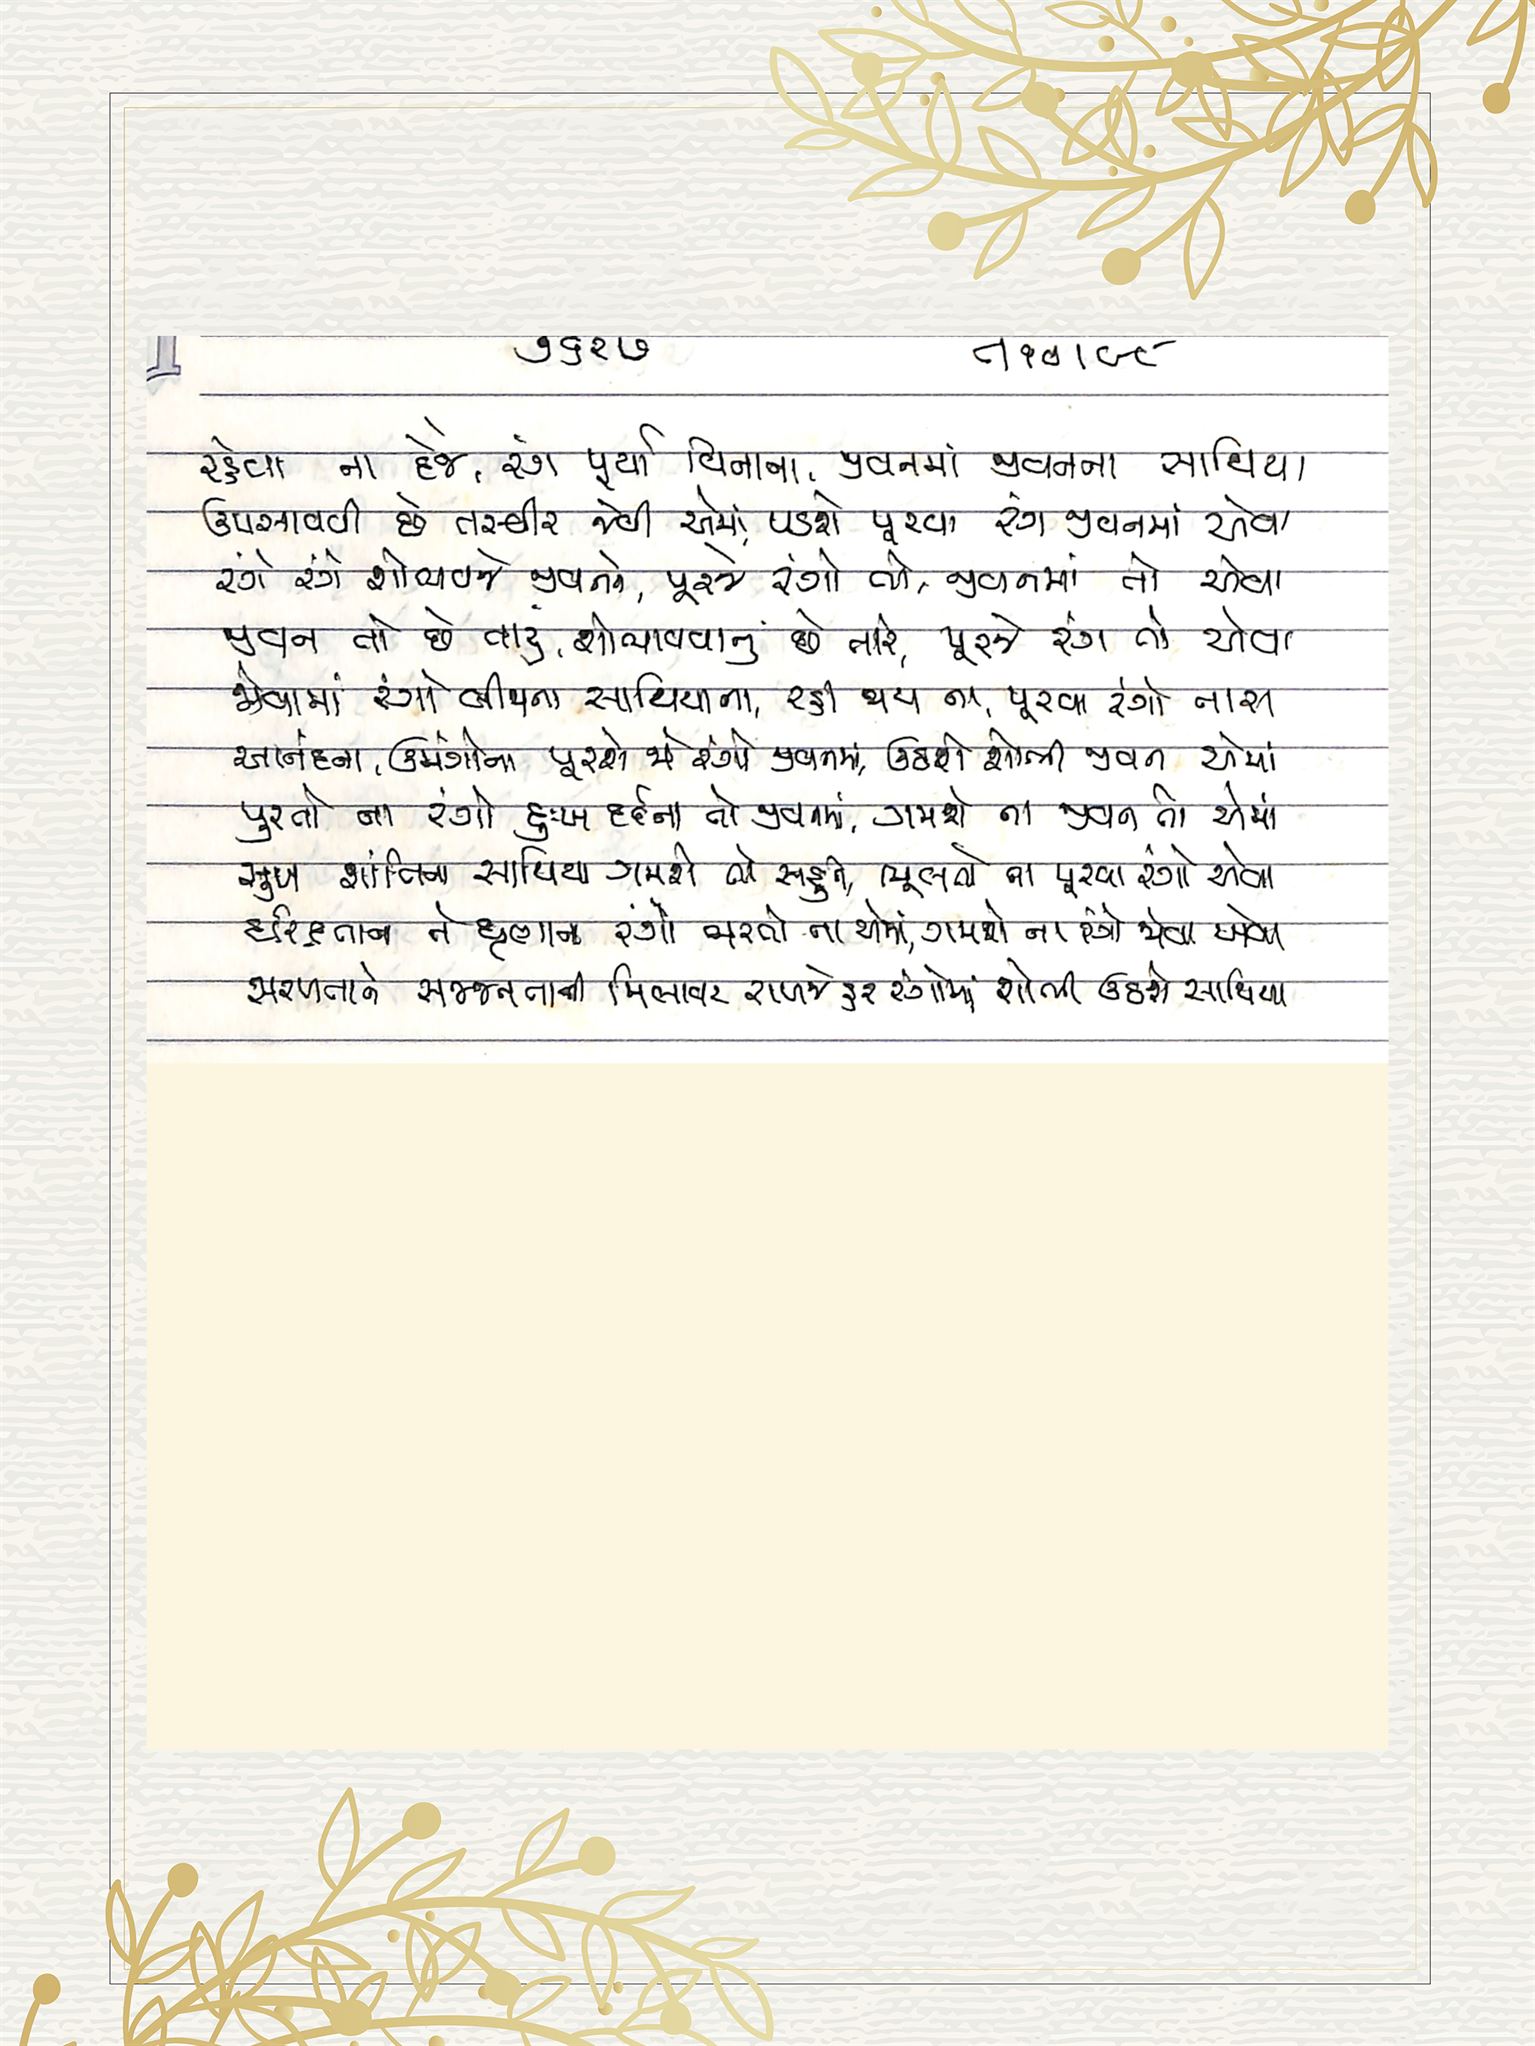 ૭૬૨૭
રહેવા ના દેજે, રંગ પૂર્યા વિનાના, જીવનમાં જીવનના સાથિયા
ઉપસાવવી છે તસ્વીર જેવી એમાં, પડશે પૂરવા રંગ જીવનમાં એવા
રંગે રંગે શોભાવજે જીવનને, પૂરજે રંગો તો, જીવનમાં તો એવા
જીવન તો છે તારું, શોભાવવાનું છે તારે, પૂરજે રંગ તો એવા
જોવામાં રંગો બીજાના સાથિયાના, રહી જાય ના, પૂરવા રંગો તારા
આનંદના, ઉમંગોના પૂરશે જે રંગો જીવનમાં, ઉઠશે શોભી જીવન એમાં
પુરતો ના રંગો દુઃખ દર્દના તો જીવનમાં, ગમશે ના જીવન તો એમાં
સુખ શાંતિના સાથિયા ગમશે તો સહુને, ભૂલતો ના પૂરવા રંગો એવા
દરિદ્રતાના ને ધૃણાના રંગો ભરતો ના એમાં, ગમશે ના રંગો જોવા એવા
સરળતાને સજ્જનતાની મિલાવટ રાખજે હર રંગોમાં શોભી ઉઠશે સાથિયા